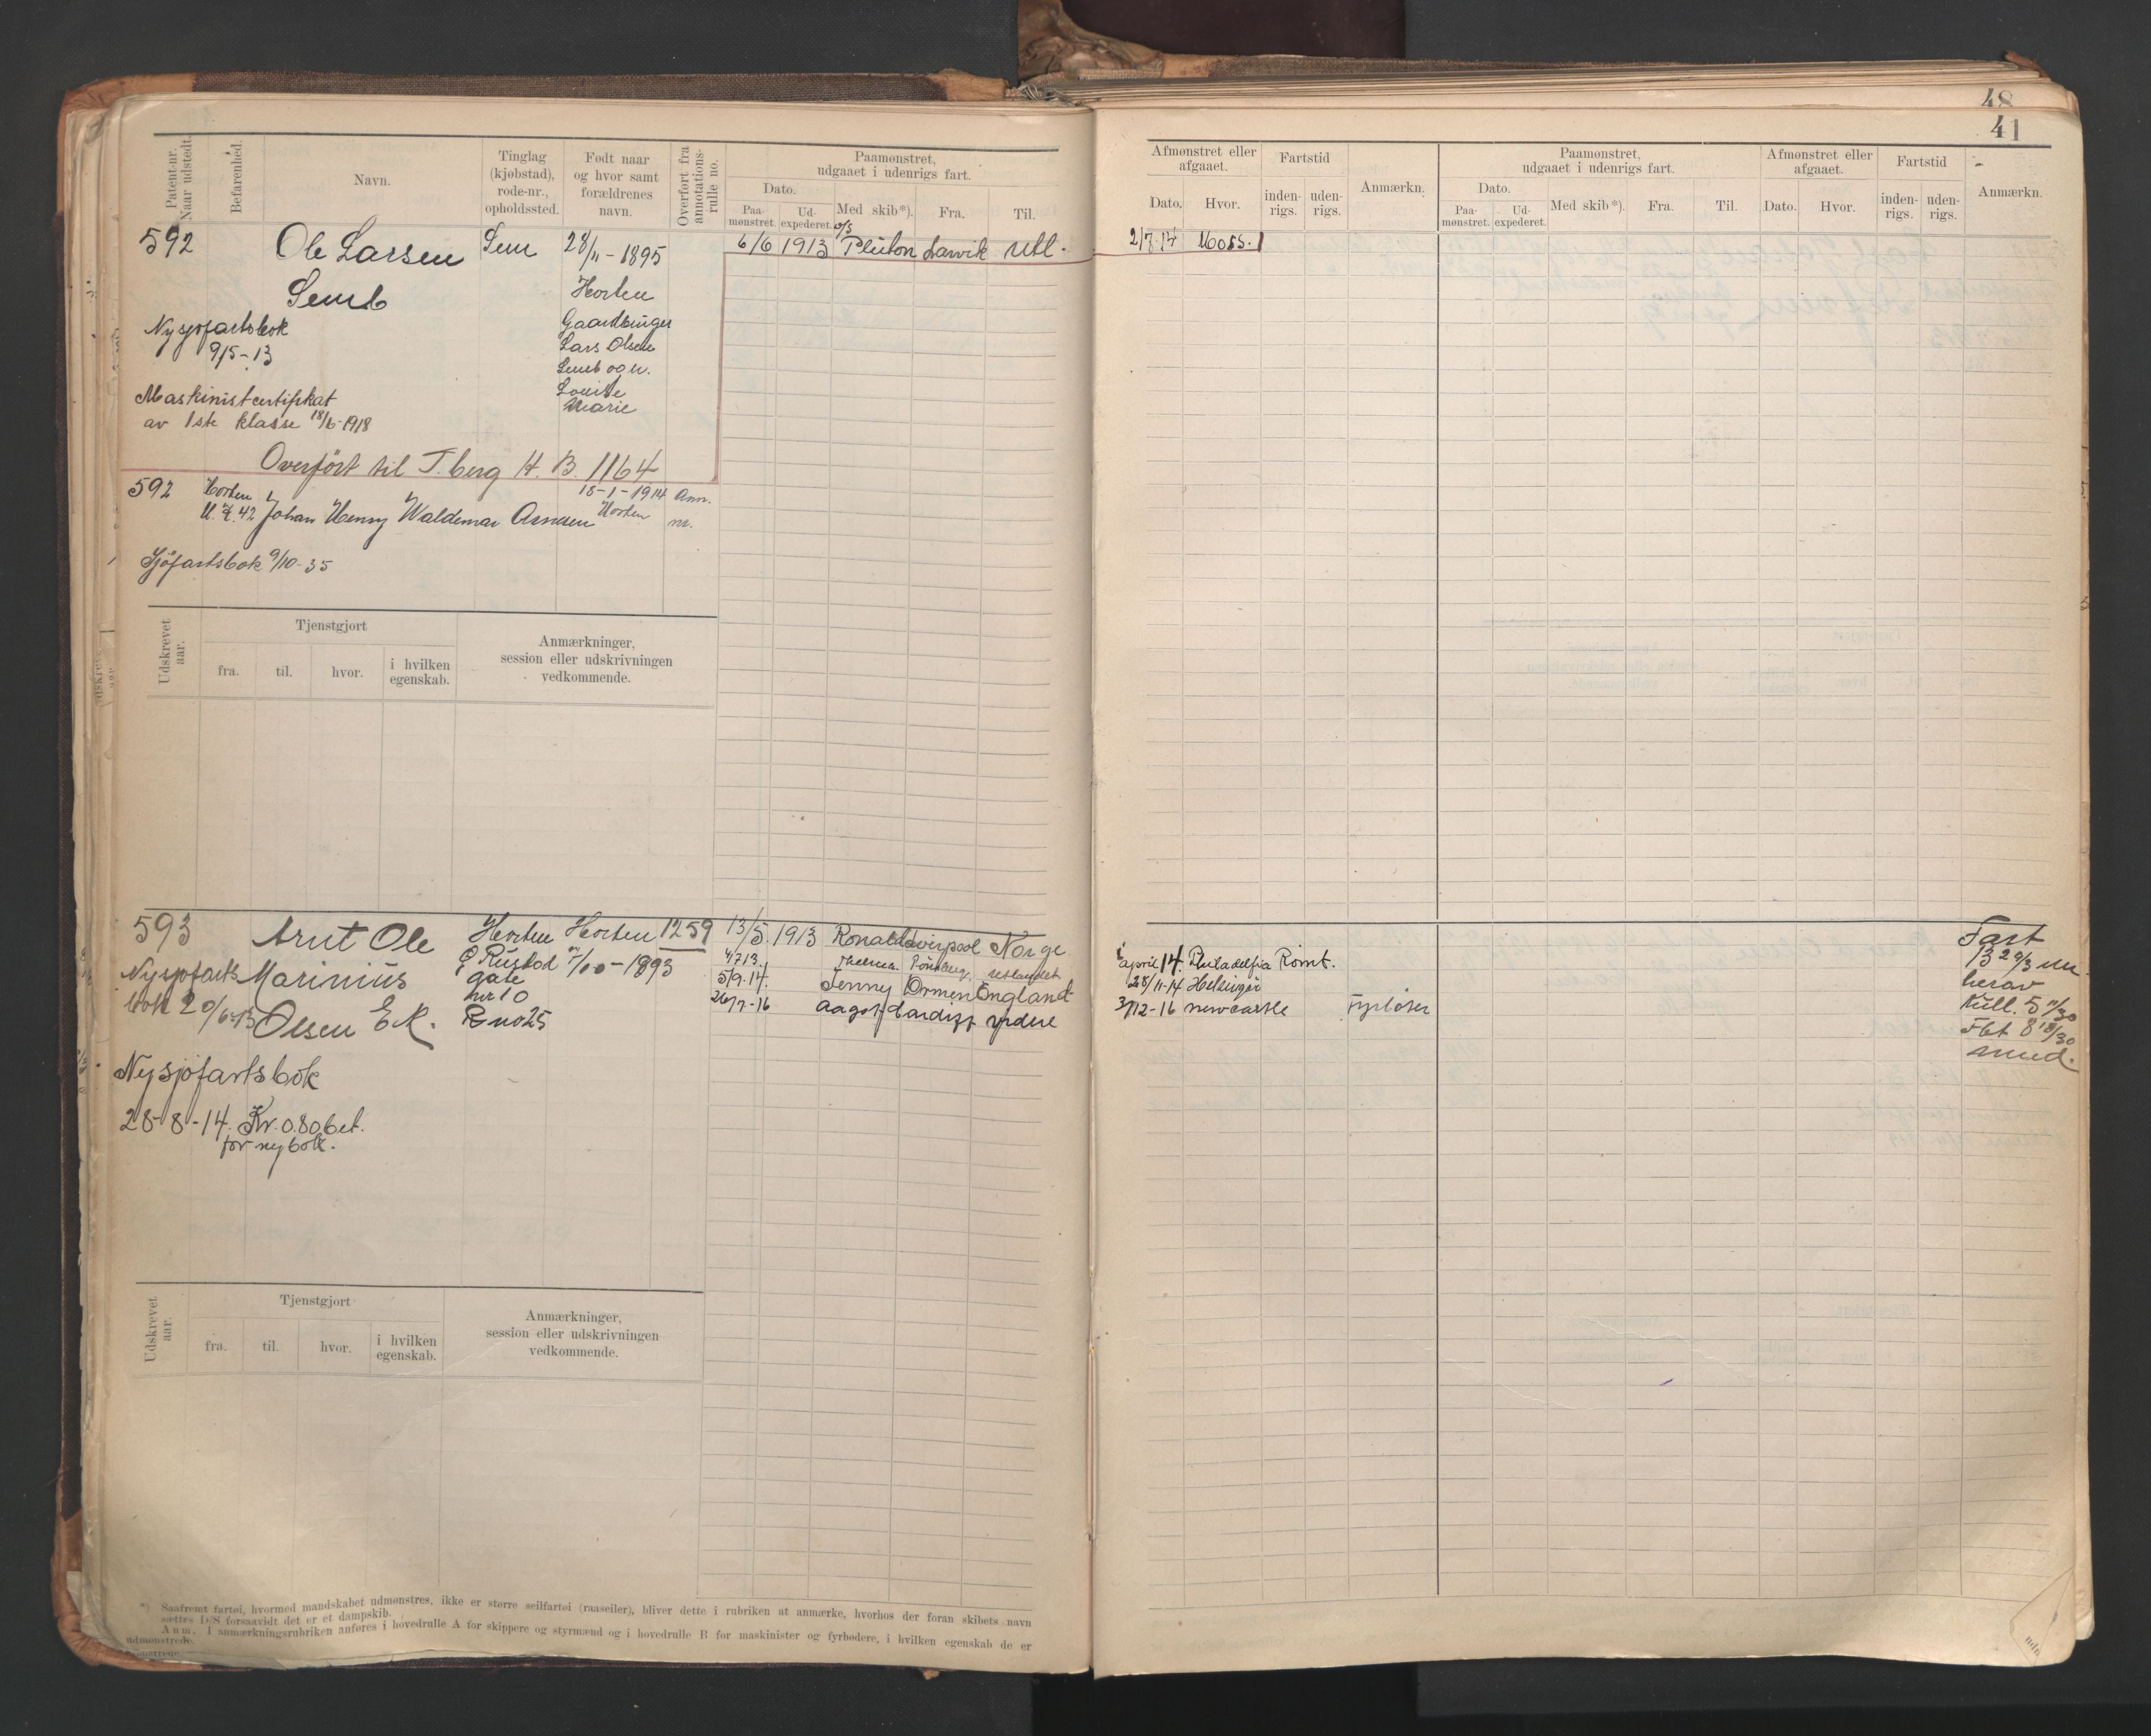 48
41
Patent-nr. Naar udstedt.
Befarenhed.
Navn.
Tinglag (kjøbstad), rode-nr., opholdssted.
Født naar og hvor samt forældrenes navn.
Overført fra annotations-rulle no.
Paamønstret, udgaaet i udenrigs fart.
Dato.
Paa-mønstret.
Ud-expederet.
Med skib*).
Fra.
Til.
Afmønstret eller afgaaet.
Dato.
Hvor.
Fartstid
inden-rigs.
uden-rigs.
Anmærkn.
Paamønstret, udgaaet i udenrigs fart.
Dato.
Paa-mønstret.
Ud-expederet.
Med skib*).
Fra.
Til.
Afmønstret eller afgaaet.
Dato.
Hvor.
Fartstid
inden-rigs.
uden-rigs.
Anmærkn.
592 Ole Larsen Sem 28/11-1895 6/6 1913 Pluton Larvik utl. 2/7.14 Moss.
Semb Horten
Ny sjøfartsbok Gaardbruger
9/5-13 Lars Olsen
Semb og h.
Maskinistcertifikat Louise
av 1ste klasse 18/6-1918 Marie
Overført til T.berg H. B. 1164
592 Horten 18-1-1914 Ann.
Johan Henny Waldemar Arnesen Horten nr.
Sjöfartsbok 9/10-35
Udskrevet aar.
Tjenstgjort
fra.
til.
hvor.
i hvilken egenskab.
Anmærkninger, session eller udskrivningen vedkommende.
593 Arnt Ole Horten Horten 1259 13/5.1913 Ronald Liverpool Norge Fart
Nysjøfarts Marinius Rustad 1893 4/7 13. Thelma. Tönsberg. utlandet april 14. Philadelfia Römt. 13 29/3
gate 5/9.14. Jenny England 28/11-14 Helsingør herav
bok 20/6-13 Olsen E.K. nr 10 26/7-16 Aagot Cardiff ydere 3/12-16 newcastle Fyrböter Kull. 5
R no 25 8 18/30
Ny sjöfartsbok mnd.
28-8-14. Kr. 0.80 bet.
for ny bok.
Udskrevet aar.
Tjenstgjort
fra.
til.
hvor.
i hvilken egenskab.
Anmærkninger, session eller udskrivningen vedkommende.
*) Saafremt fartøi, hvormed mandskabet udmønstres, ikke er større seilfartøi (raaseiler), bliver dette i rubriken at anmærke, hvorhos der foran skibets navn
sættes D/S forsaavidt det er et dampskib.
Anm. I anmærkningsrubriken anføres i hovedrulle A for skippere og styrmænd og i hovedrulle B for maskinister og fyrbødere, i hvilken egenskab de er
udmønstrede.